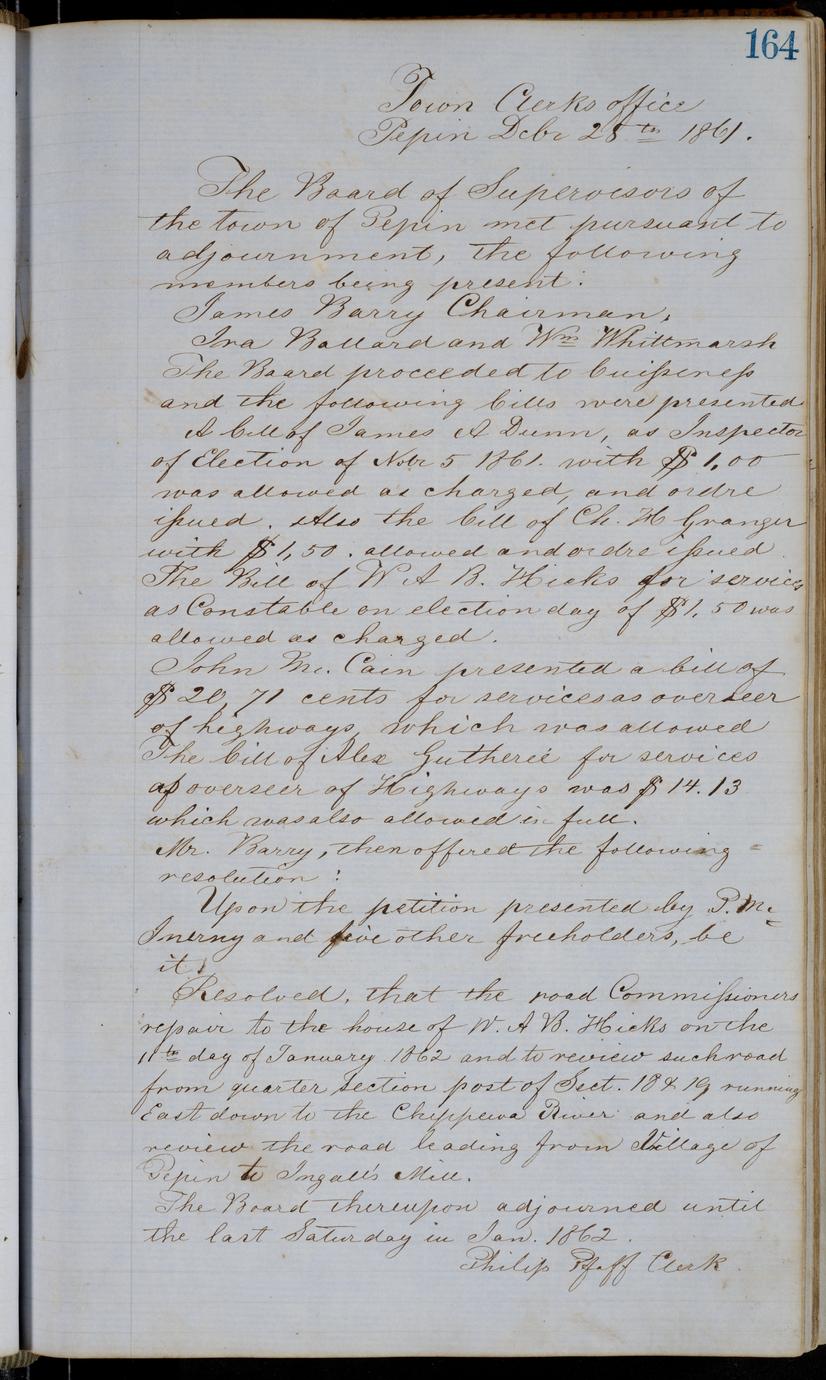 164
Town Clerks office
Pepin Debr 28th 1861.
The Board of Supervisors of
the town of Pepin met pursuant to
adjournment, the following
members being present:
James Barry Chairman,
Ira Ballard and Wm Whittmarsh
The Board proceeded to buissiness
and the following bills were presented
A bill of James A Dunn, as Inspector
of Election of Nobr 5 1861. with $1,00
was allowed as charged, and ordre
issued. Also the bill of Ch. H Granger
with $1,50. allowed and ordre issued
The Bill of W A B. Hicks for services
as Constable on election day of $1,50 was
allowed as charged.
John Mc. Cain presented a bill of
$20,71 cents for services as overseer
of highways, which was allowed
The bill of Alex Gutherie for services
as overseer of Highways was $14.13
which was also allowed in full.
Mr. Barry, then offered the following =
resolution:
Upon the petition presented by P. Mc=
Inerny and five other freeholders, be
it,
Resolved, that the road Commissioners
repair to the house of W. A B. Hicks on the
11th day of January 1862 and to review such road
from quarter section post of Sect. 18 & 19 running
East down to the Chippewa River and also
review the road leading from Village of
Pepin to Ingall's Mill.
The Board thereupon adjourned until
the last Saturday in Jan. 1862.
Philip Pfaff Clerk.